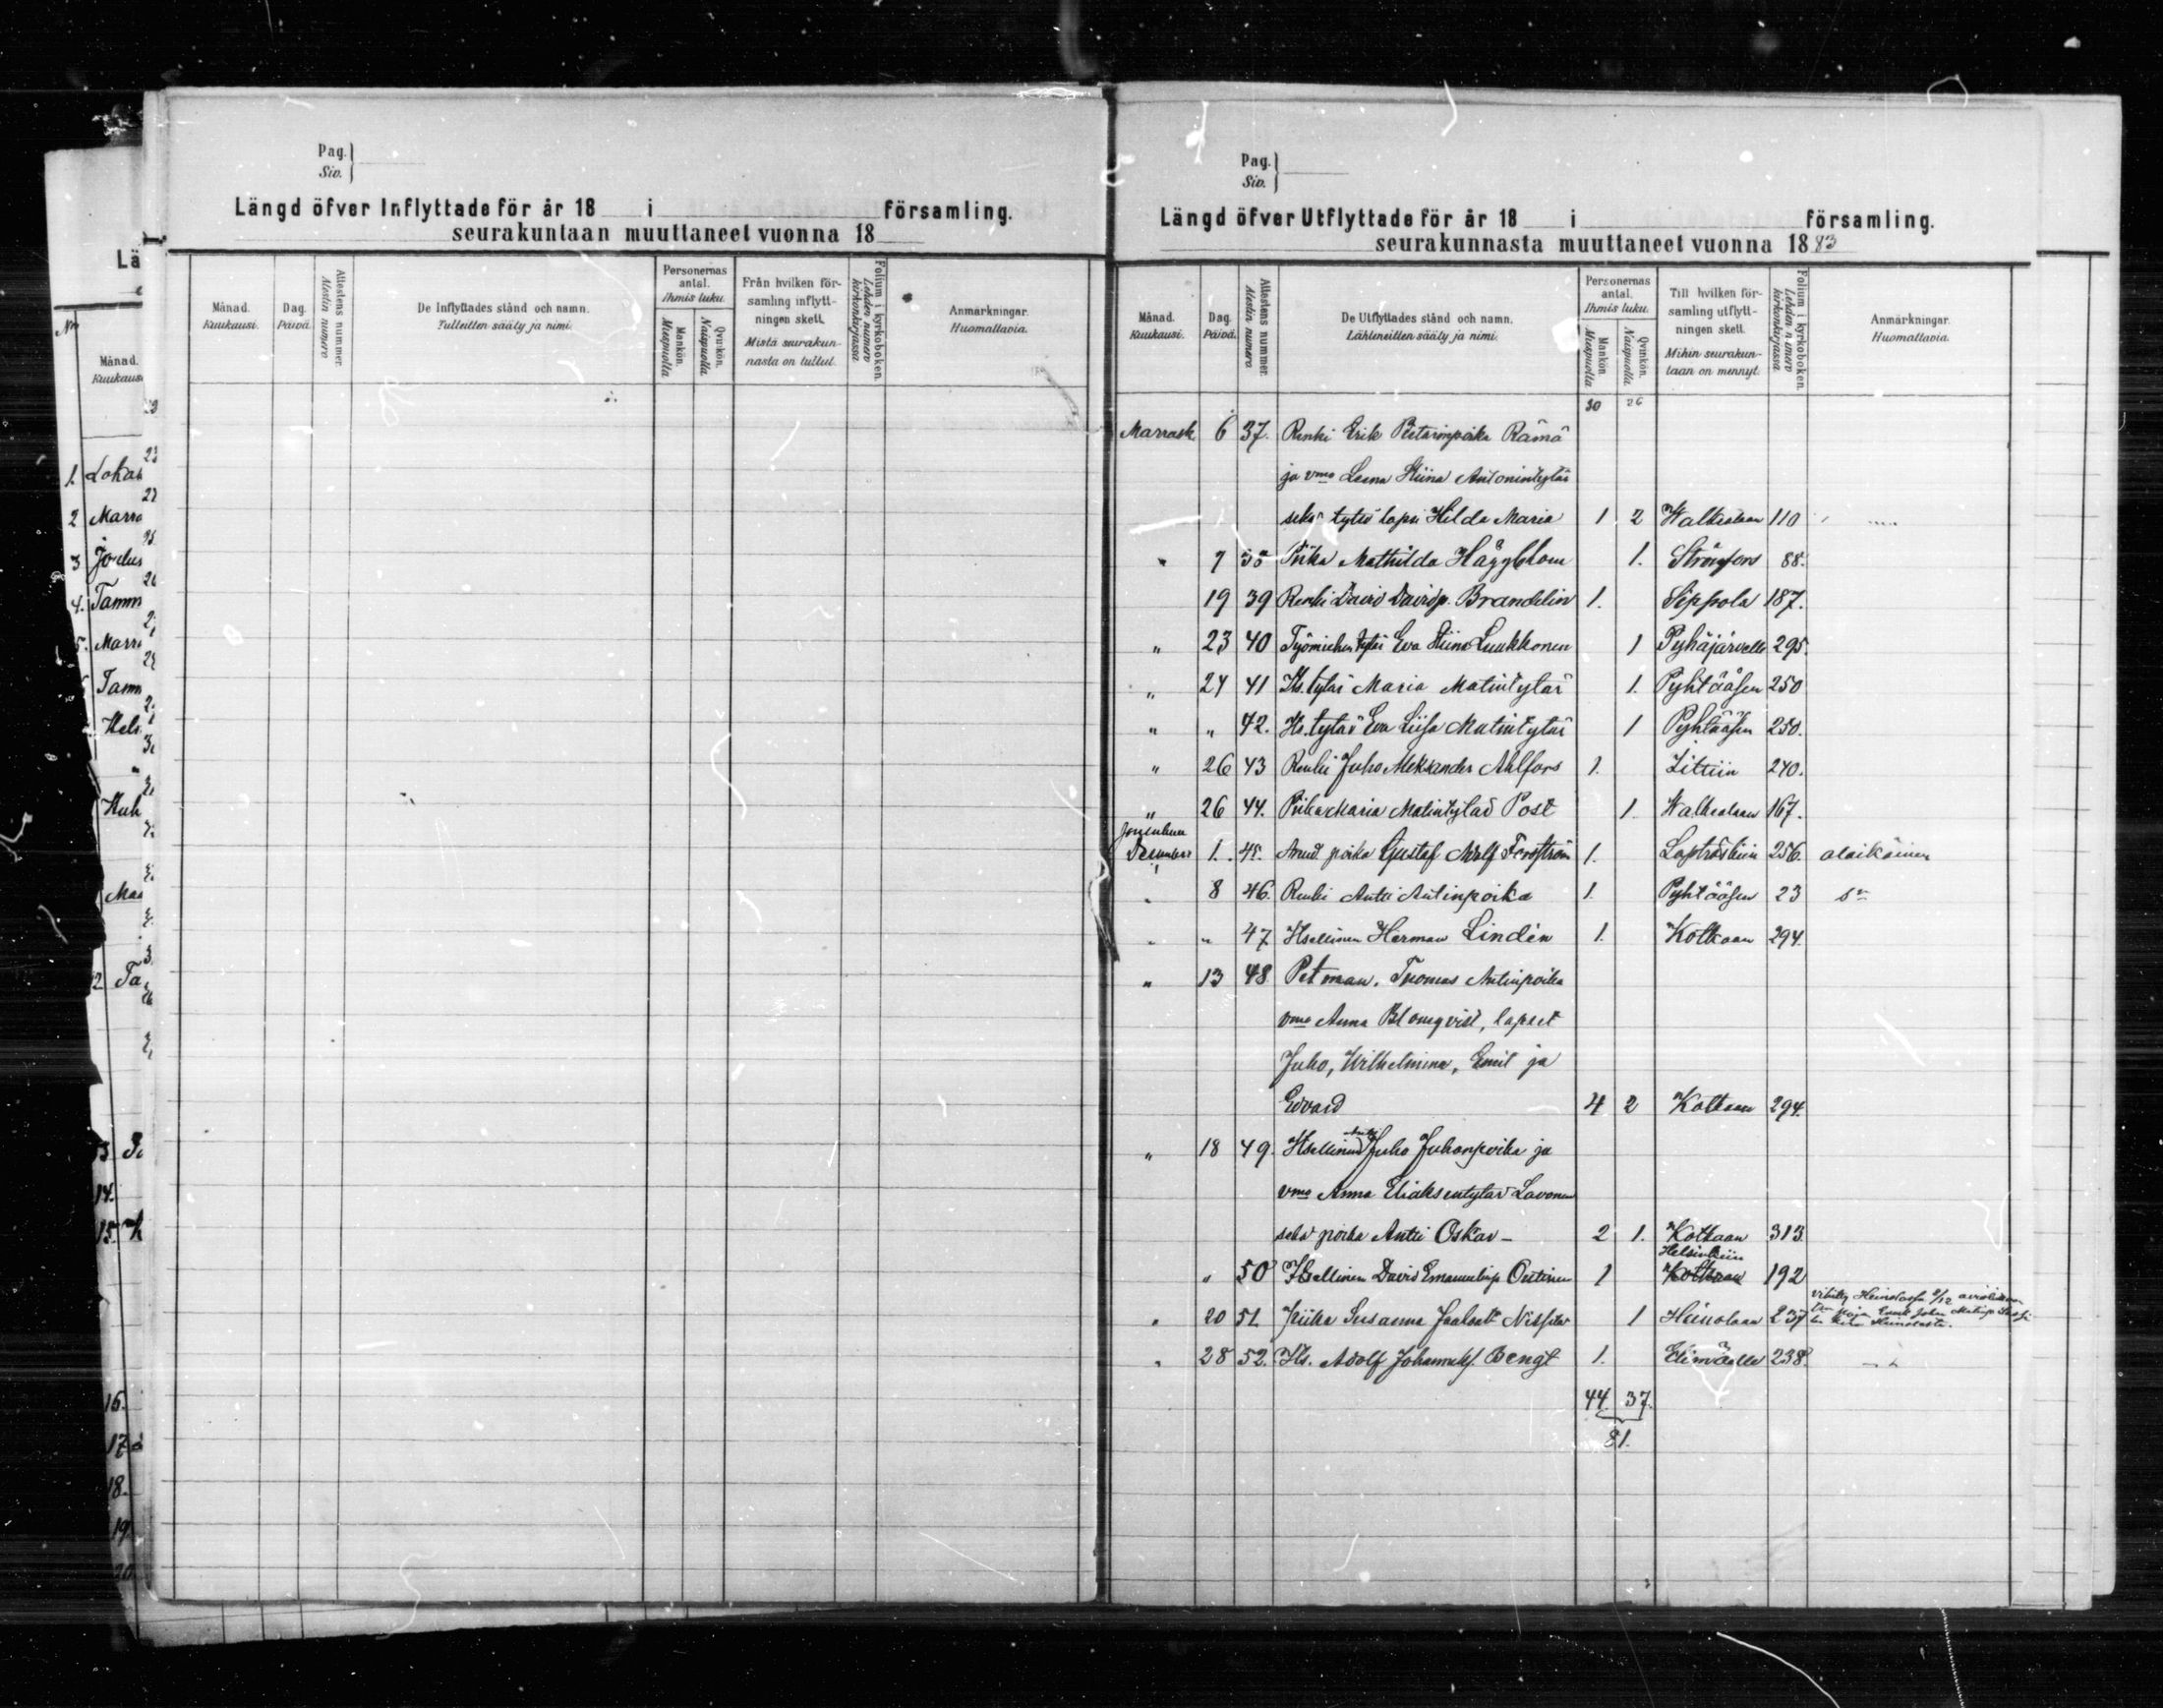 Pag.
Siv.
Längd öfver Inflyttade för år 18 i församling.
seurakuntaan muuttaneet vuonna 18
Månad. Kuukausi.
Dag. Päivä.
Attestens nummer. Alestin numero
De Inflyttades stånd och namn. Tulleitten sääty ja nimi.
Personernas antal. Ihmis luku.
Mankön. Miespuolia
Qvinkön. Naispuolia
Från hvilken församling inflyttningen skett.
Mistä seurakunnasta on tullut.
Folium i kyrkoboken. Lehden numero kirkonkirjassa
Anmärkningar. Huomattavia.
Pag.
Siv.
Längd öfver Utflyttade för år 18 i församling.
seurakunnasta muuttaneet vuonna 1883
Månad. Kuukausi.
Dag. Päivä.
Attestens nummer. Alestin numero
De Utflyttades stånd och namn. Lähteneitten sääty ja nimi.
Personernas antal. Ihmis luku.
Mankön. Miespuolia
Qvinkön. Naispuolia
Till hvilken församling utflyttningen skett.
Mihin seurakuntaan on mennyt.
Folium i kyrkoboken. Lehden numero kirkonkirjassa
Anmärkningar. Huomattavia.
30 26
Marrask 6 37. Renki Erik Pietarinpoika Rämä
ja vmo Leena Stiina Antonintytär
sekä tytär lapsi Hilda Maria 1 2 Walkealaan 110
" 7 38 Piika Mathilda Häggblom 1. Strömfors 88.
19 39 Renki David Davidp. Brandelin 1. Sippola 187.
" 23 40 Työmiehen tytär Eva Stiina Luukkonen 1 Pyhäjärvelle 295.
" 24 41 Its. tytär Maria Matintytär 1. Pyhtääsen 250
" " 42. Its. tytär Eva Liisa Matintytär 1 Pyhtääsen 250.
" 26 43 Renki Juho Aleksander Ahlfors 1. Litiin 240.
" 26 44. Piika Maria Matintytär Post 1. Walkealaan 167.
Joulukuu
December 1. 45. poika Gustaf Adolf Forsström 1. 256. alaikäinen
" 8 46. Renki Antti Antinpoika 1. Pyhtääsen 23
" " 47 Itsellinen Herman Lindén 1. Kotkaan 294.
" 13 48 Tuomas Antinpoika
vmo Anna Blomqvist, lapset
Juho, Wilhelmina, Emil ja
Edvard 4 2 Kotkaan 294.
" 18 49. Itsellinen Juho Juhonpoika ja
vmo Anna Eliaksentytär Lavonen
sekä poika Antti Oskar - 2 1. Kotkaan 313.
Helsinkiin
" 50 Itsellinen David Emanuelinp Outinen 1 Kotkaan 192
" 20 51. Piika Susanna 1 Heinolaan 237
" 28 52. Its. Adolf Johanneks. Bengt 1. Elimäelle 238.
44. 37.
81.